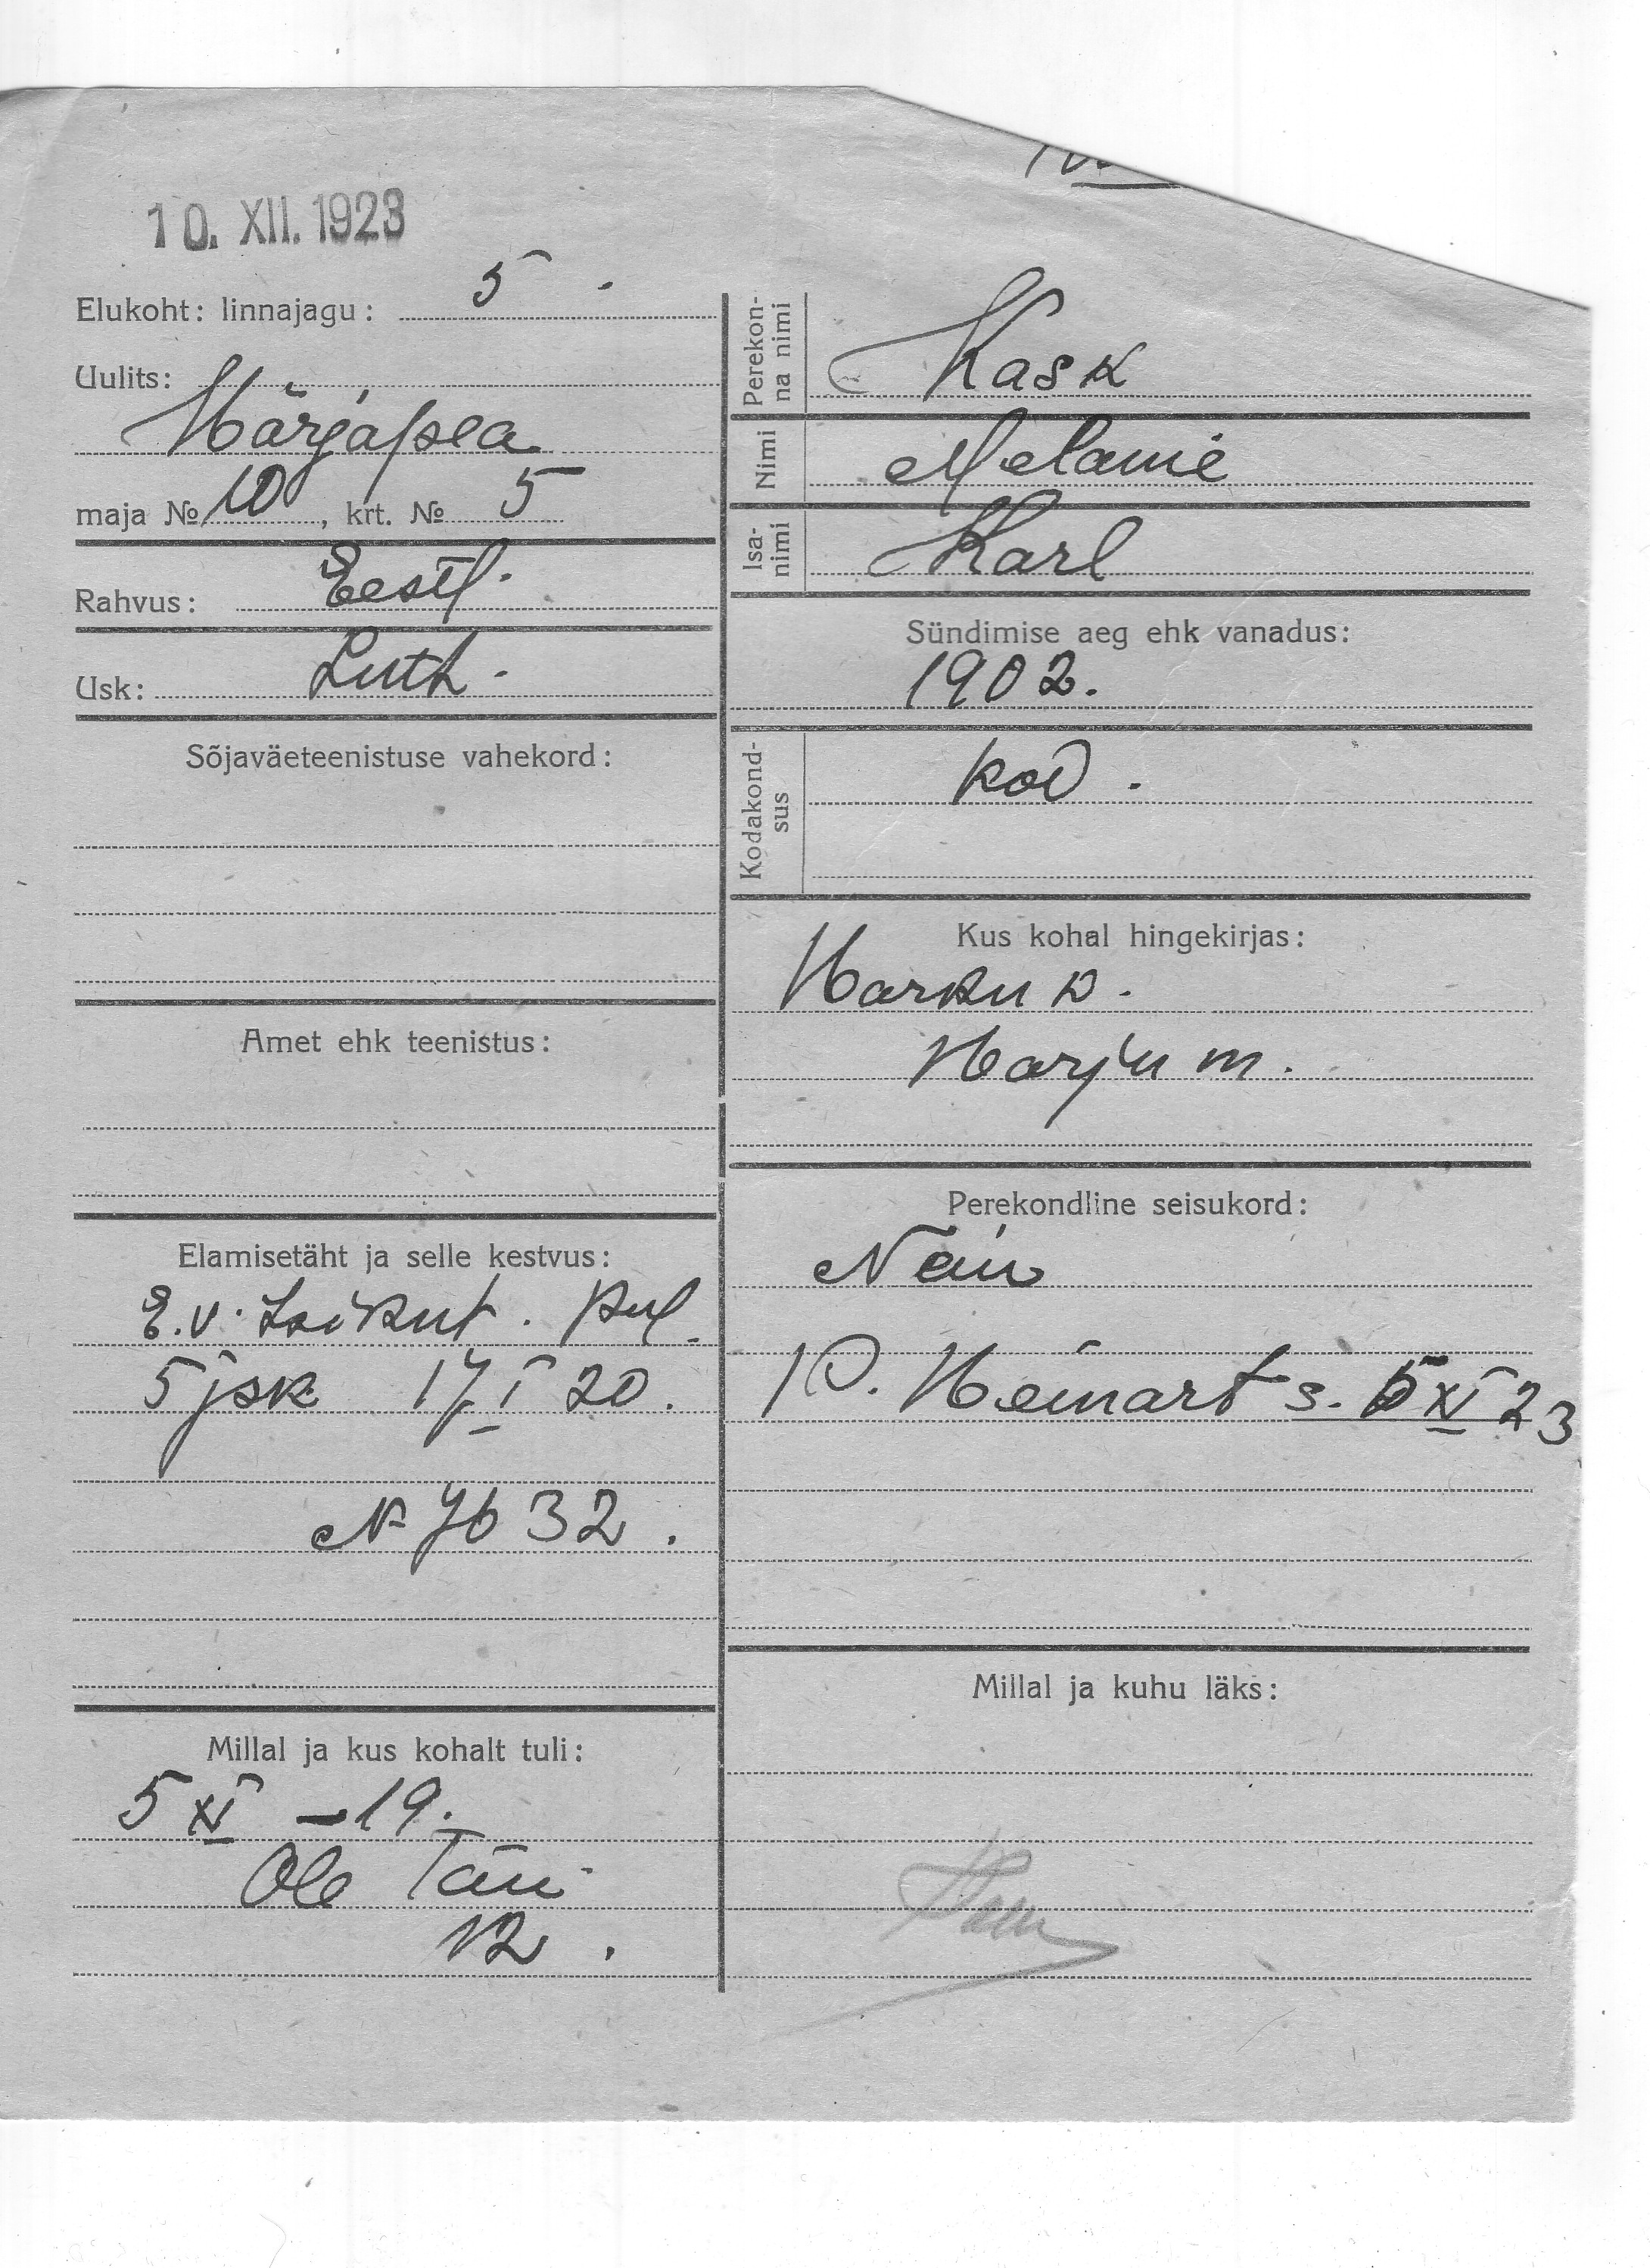 10. XII. 1923
Elukoht: linnajagu: 5.
Uulits:
Härjapea
maja № 10, krt. № 5
Rahvus: Eestl.
Usk: Luth.
Sõjaväeteenistuse vahekord:
Amet ehk teenistus:
Elamisetäht ja selle kestvus:
E.v. Isikut.
5 jsk 17 I 20.
N 7632.
Millal ja kus kohalt tuli:
5 XI –19.
12.
Perekon-
na nimi
Kask
Nimi
Melanie
Isa-
nimi
Karl
Sündimise aeg ehk vanadus:
1902.
Kodakond-
sus
kod.
Kus kohal hingekirjas:
Harku v.
Harju m.
Perekondline seisukord:
Nein
Heinart s. 5 XI 23
Millal ja kuhu läks: